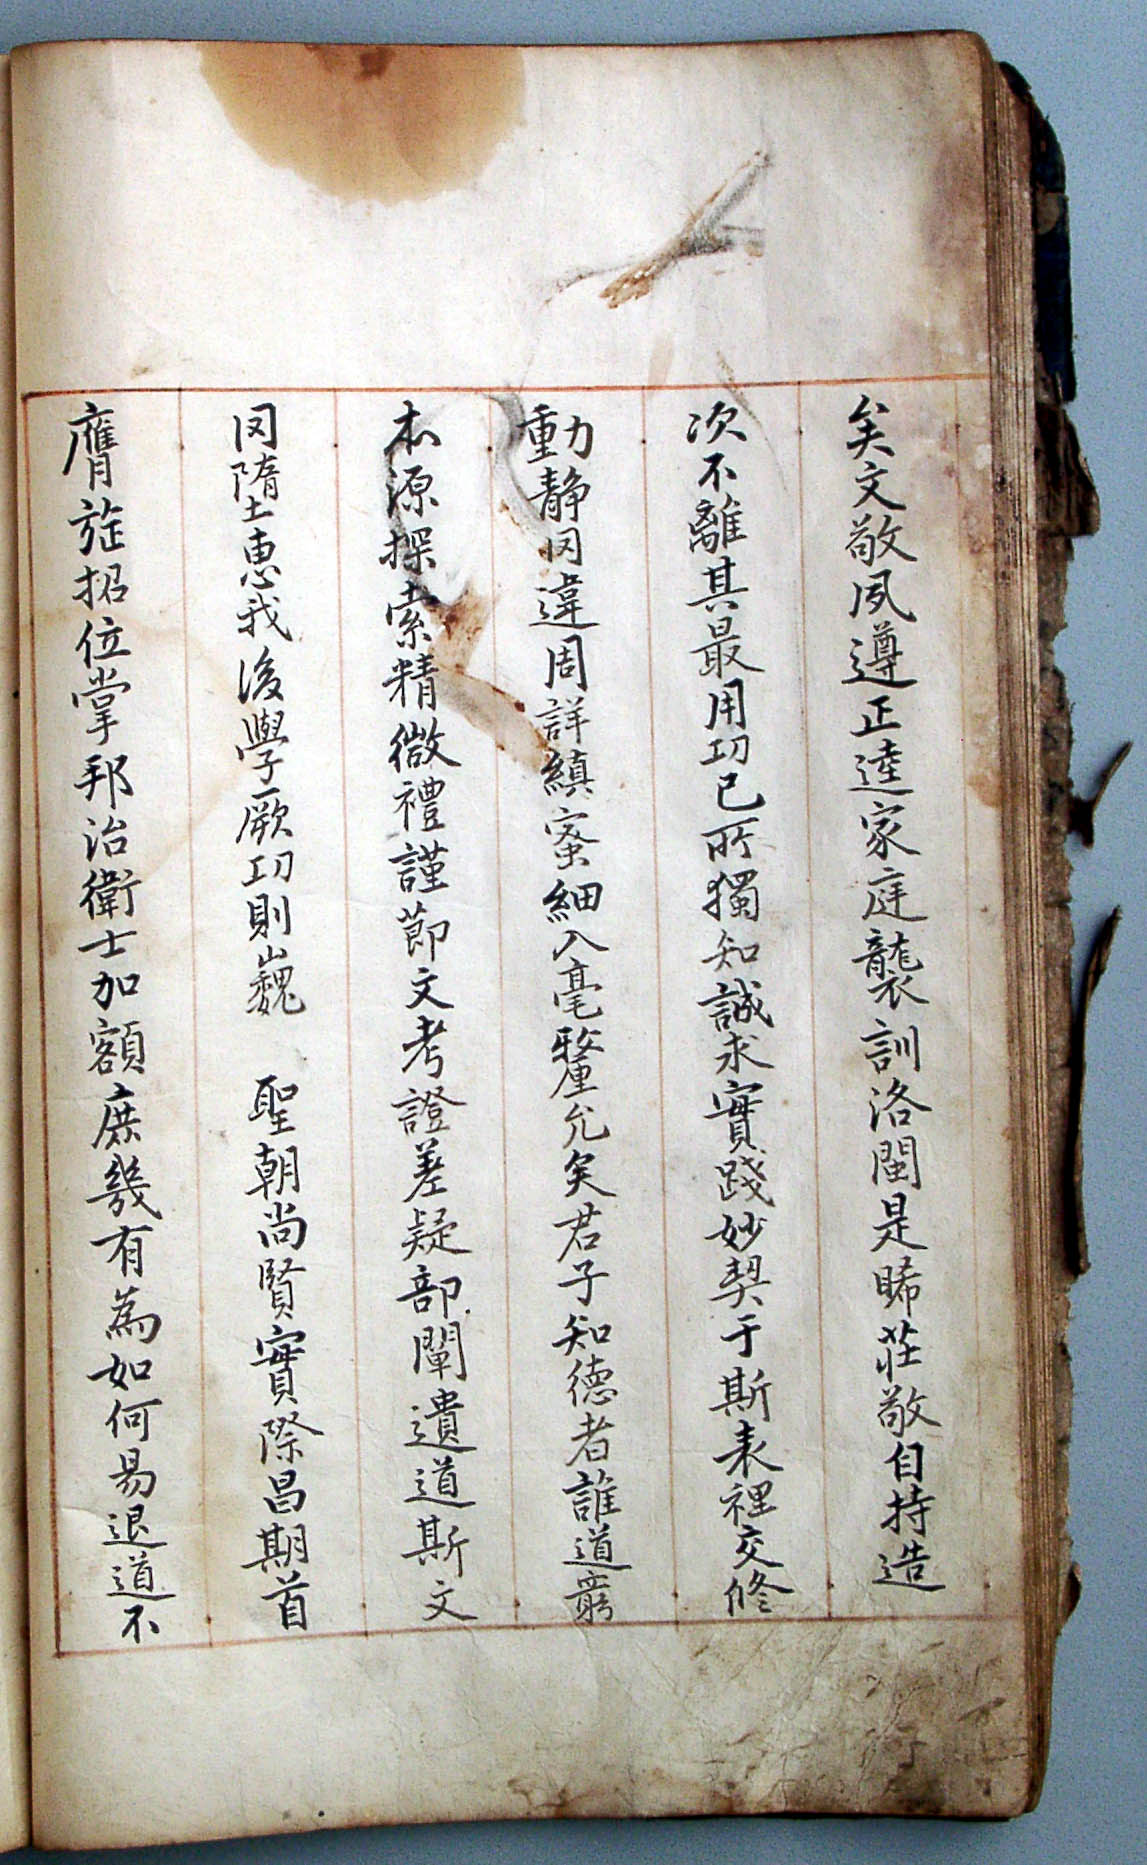 矣文敬夙遵正逵家庭襲訓洛閩是晞莊敬自持造
次不離其最用㓛已所獨知誠求實踐妙契于斯表裡交修
動靜罔違周詳縝蜜細入毫釐允矣君子知德者誰道竆
本源探索精微禮謹節文考證差疑部闡遺道斯文
罔墮惠我後學厥㓛則巍 聖朝尚賢實際昌期首
膺旌招位掌邦治衛士加額庶幾有為如何易退道不